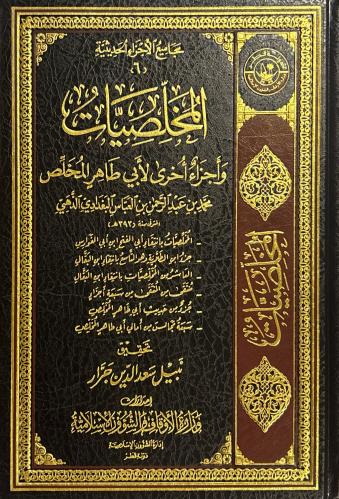 مجاميع الأجزاء الحديثية
(٦)
المخلصيات
وأجزاء أخرى لأبي طاهر المخلص
محمد بن عبد الرحمن بن العباس البغدادي الذهبي
المتوفى سنة (٣٩٣هـ)
- المخلصيات بانتقاء أبي الفتح ابن أبي الفوارس
- جزء ابن الطلاية وهو التاسع بانتقاء ابن البقال
- العاشر من المخلصيات بانتقاء ابن البقال
- منتقى من المنتقى من سبعة أجزاء
- جزء من حديث أبي طاهر المخلص
- سبعة مجالس من أمالي أبي طاهر المخلص
تحقيق
نبيل سعد الدين جرار
إصدارات
وزارة الأوقاف والشؤون الإسلامية
إدارة الشؤون الإسلامية
دولة قطر
المخلصيات